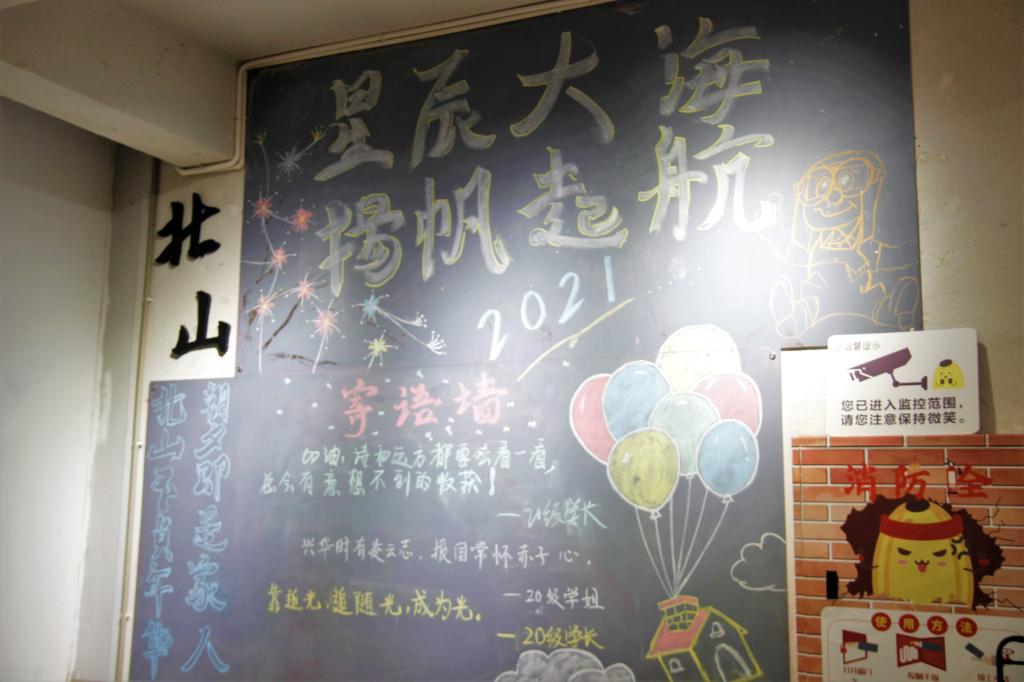 星辰大海
扬帆起航
2021
北山
朝夕即是家人
北山不负年华
寄语墙
加油,诗和远方都要去看一看,
总会有意想不到的收获!
—21级学长
兴华时有凌云志,报国常怀赤子心.
—20级学姐
靠近光,追随光,成为光。
—20级学长
温馨提示
您已进入监控范围,
请您注意保持微笑。
消防栓
使用方法